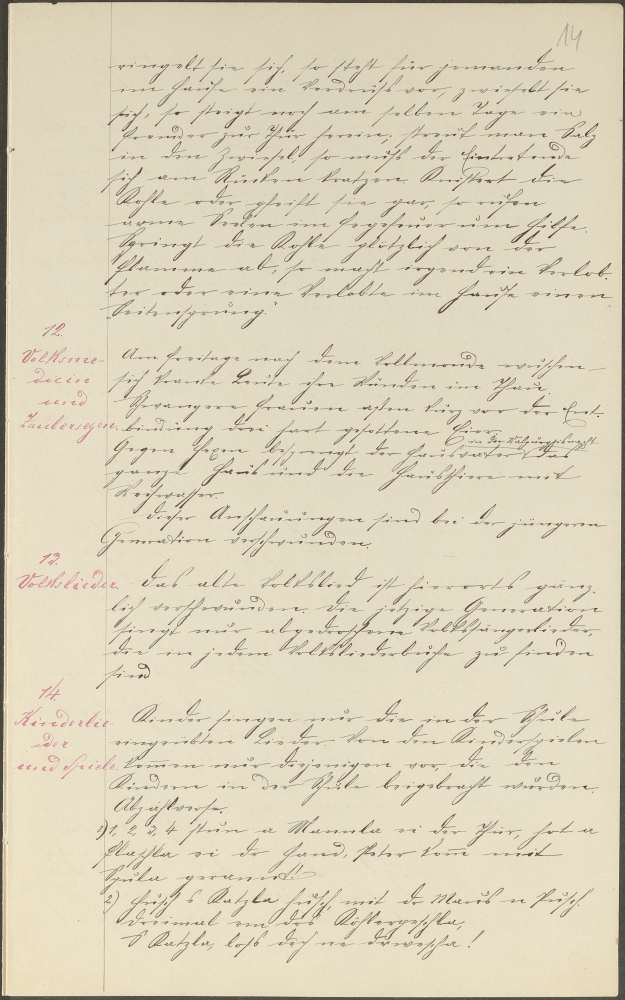 14
ringelt sie sich, so steht für jemanden
im Hause ein Verdruß vor, zwiebelt sie
sich, so steigt noch am selben Tage ein
Fremder zur Thür herein; streut man Salz
in den Zwiesel, so muß der Eintretende
sich am Rücken kratzen. Knistert die
Kohle oder pfeift sie gar, so rufen
arme Seelen im Fegefeuer um Hilfe.
Springt die Kohle plötzlich von der
Flamme ab, so macht irgend ein Verlob-
ter oder eine Verlobte im Hause einen
„Seitensprung."
12.
Volksme-
dicin
und
Zaubersegen.
Am Freitage nach dem Vollmonde wuschen
sich kranke Leute ihre Wunden im Thau.
Schwangere Frauen aßen kurz vor der Ent-
bindung drei hart gesottene Eier.
Gegen Hexen besprengt der Hausvater in der Walpurgisnacht das
ganze Haus und die Hausthiere mit
Weihwasser.
Dieser Anschauungen sind bei der jüngeren
Generation verschwunden.
13.
Volkslieder
Das alte Volkslied ist hierorts gänz-
lich verschwunden. Die jetzige Generation
singt nur abgedroschene Volkssängerlieder,
die in jedem Volksliederbuche zu finden
sind.
14.
Kinderlie-
der
und Spiele.
Kinder singen nur die in der Schule
eingeübten Lieder. Von den Kinderspielen
kommen nur diejenigen vor, die den
Kindern in der Schule beigebracht wurden.
Abzählverse.
1) 1, 2, 3, 4 stun a Mannla ei der Thür, hot a
ei dr Hand, Peter komm mit
Spula gerannt!
2) Husch s Katzla husch, mit dr Maus n Pusch.
Dreimal em dos
S Katzla, loß dich ne derwescha!